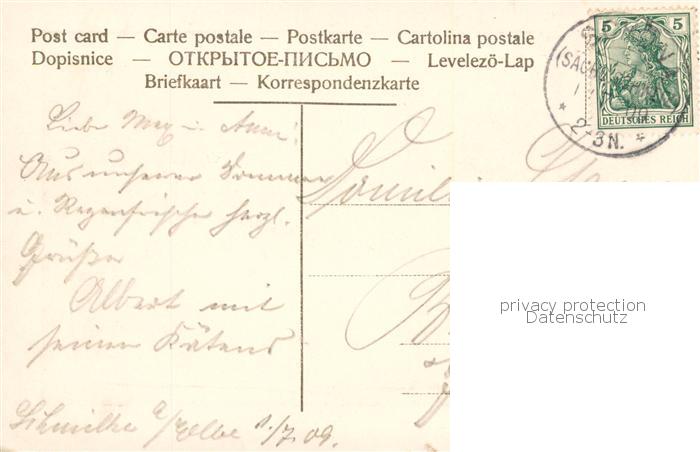 Post card — Carte postale — Postkarte — Cartolina postale
Dopisnice — ОТКРЫТОЕ-ПИСЬМО — Levelezö-Lap
Briefkaart — Korrespondenzkarte
5 5
DEUTSCHES REICH
* 2-3N. *
Liebe Max u. Anna!
Aus unserer Sommer
u. Regenfrische herzl.
Grüße
Albert mit
seinen
Schmilka a/Elbe 1./7.09.
Familie
privacy protection
Datenschutz